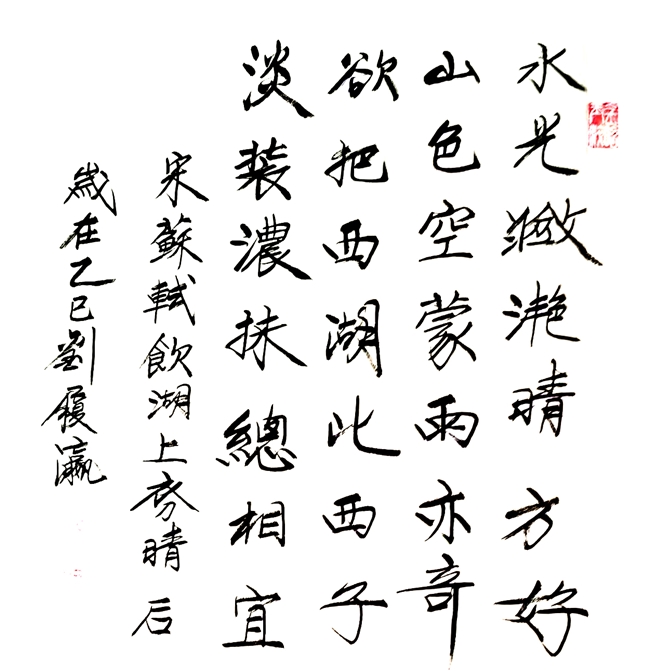 水光瀲滟晴方好
山色空蒙雨亦奇
欲把西湖比西子
淡装濃抹總相宜
宋蘇軾飲湖上晴后
歲在乙巳劉履瀛